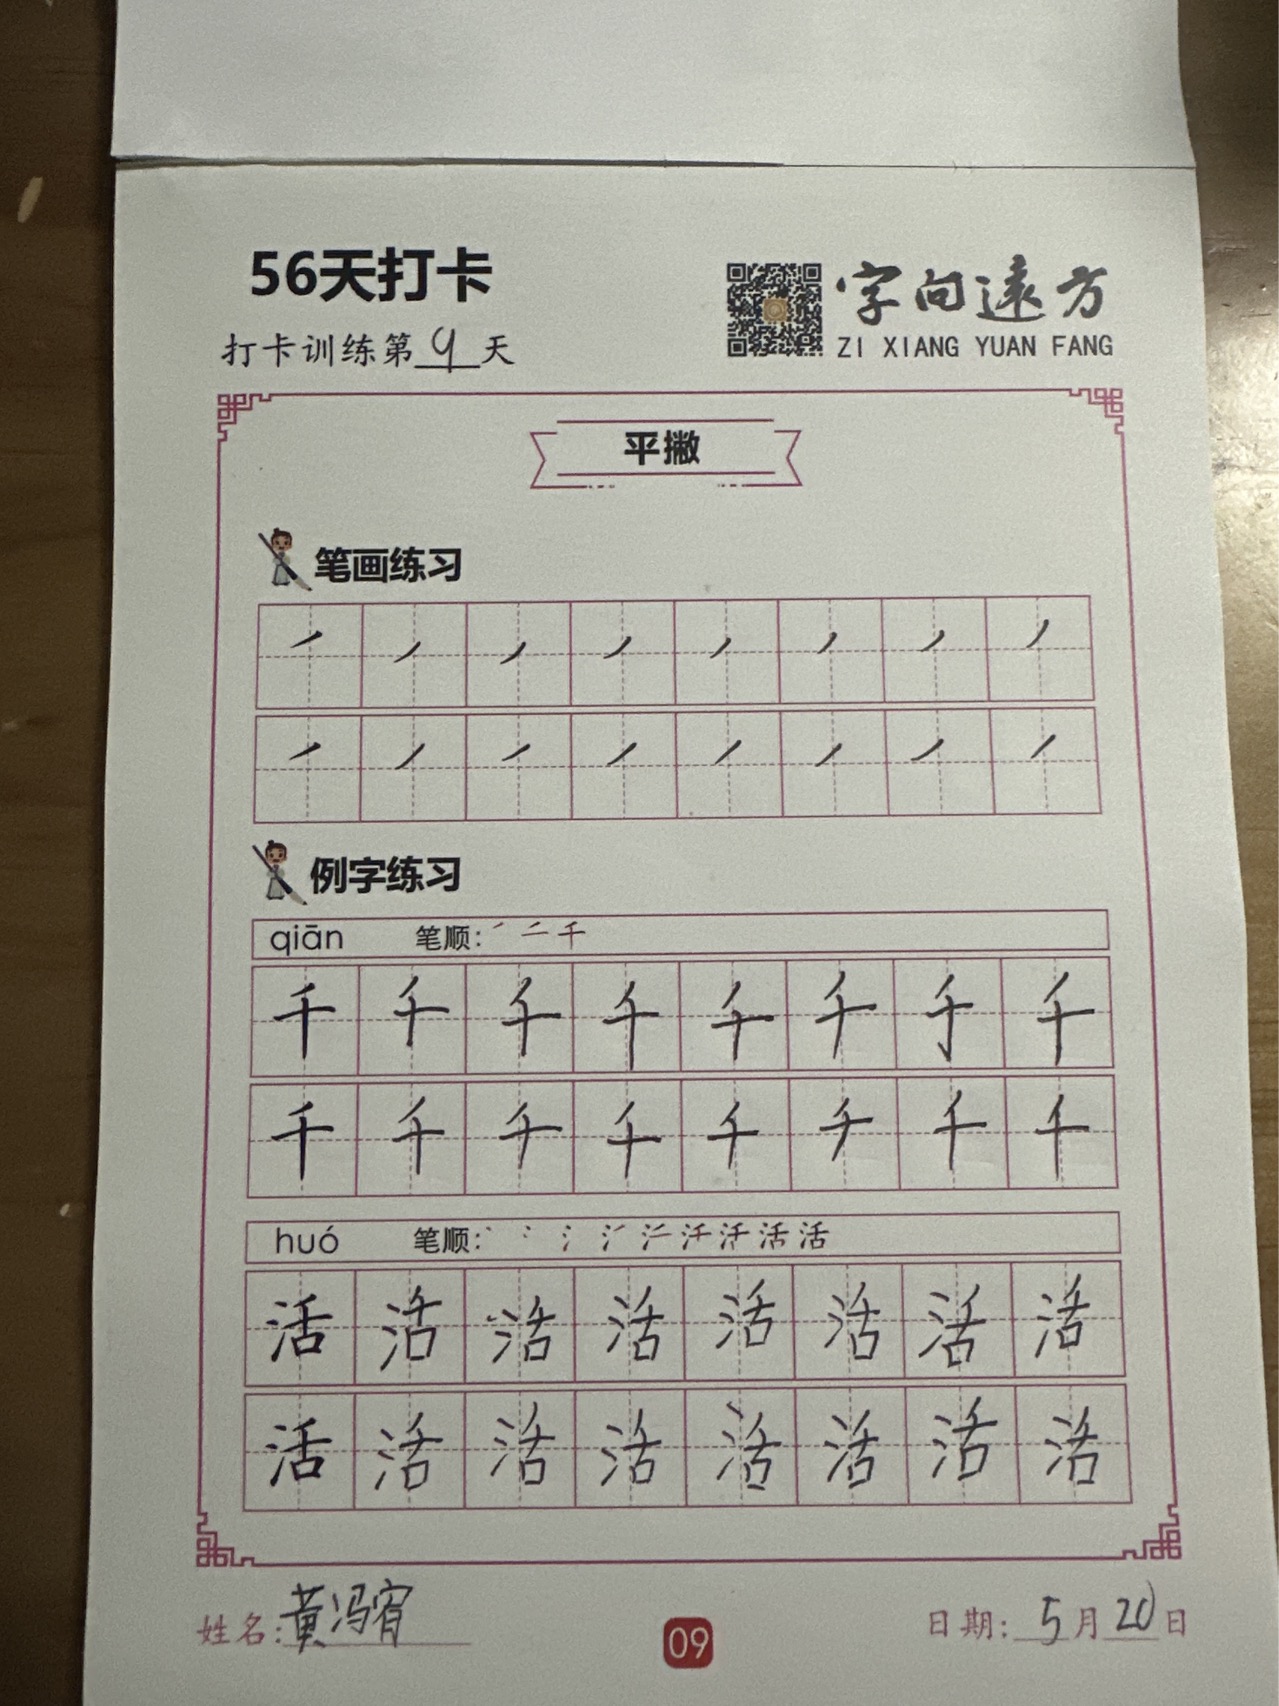 56天打卡
字向遠方
打卡训练第9天
ZI XIANG YUAN FANG
平撇
笔画练习
例字练习
qiān 笔顺: ㇒ 二 千
千 千 千 千 千 千 千 千
千 千 千 千 千 千 千 千
huó 笔顺: 活
活 活 活 活 活 活 活 活
活 活 活 活 活 活 活 活
姓名: 黄冯宥
09
日期: 5月20日